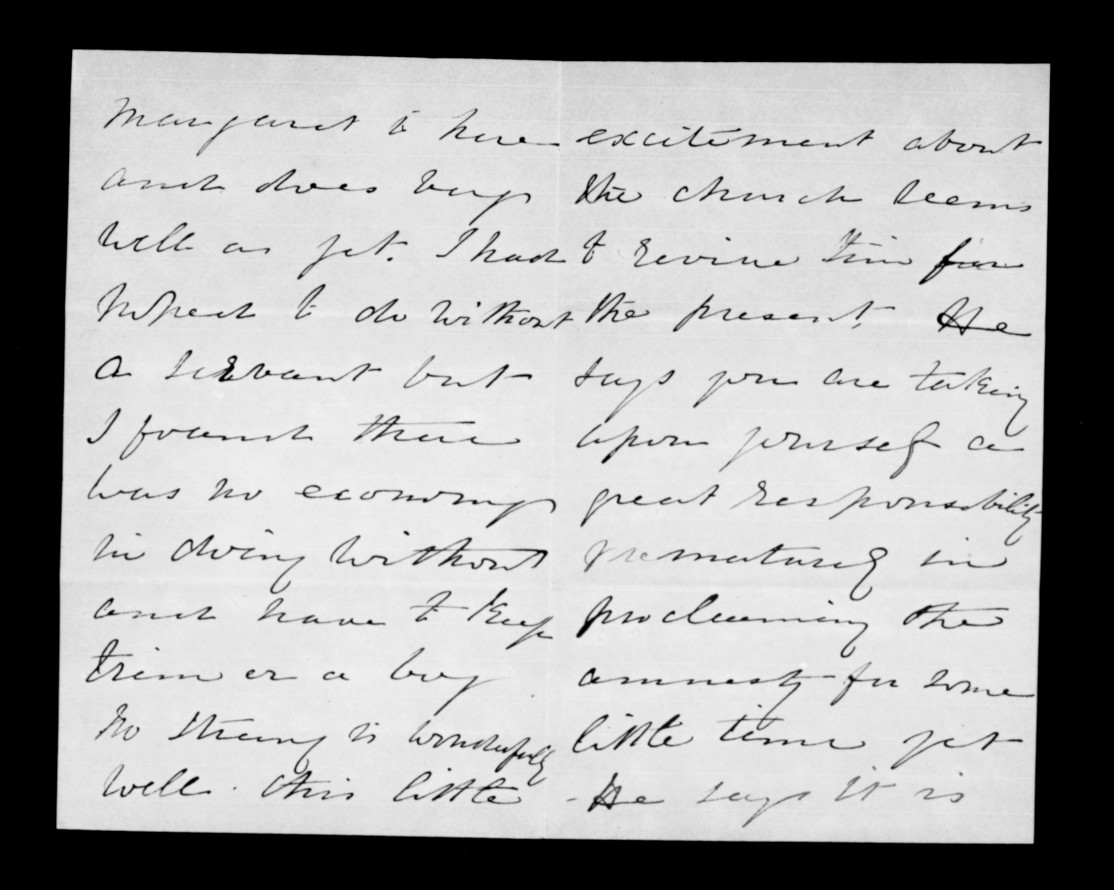 Margaret is here
and does very
well as yet. I had
hoped to do without
a servant but
I found there
was no economy
in doing without
and have to keep
or a boy
Mr Strang is wonderfully
well. this little
excitement about
the church seems
to revive him for
the present. He
says you are taking
upon yourself a
great responsibility
prematurely in
proclaiming the
amnesty for some
little time yet
- He says it is